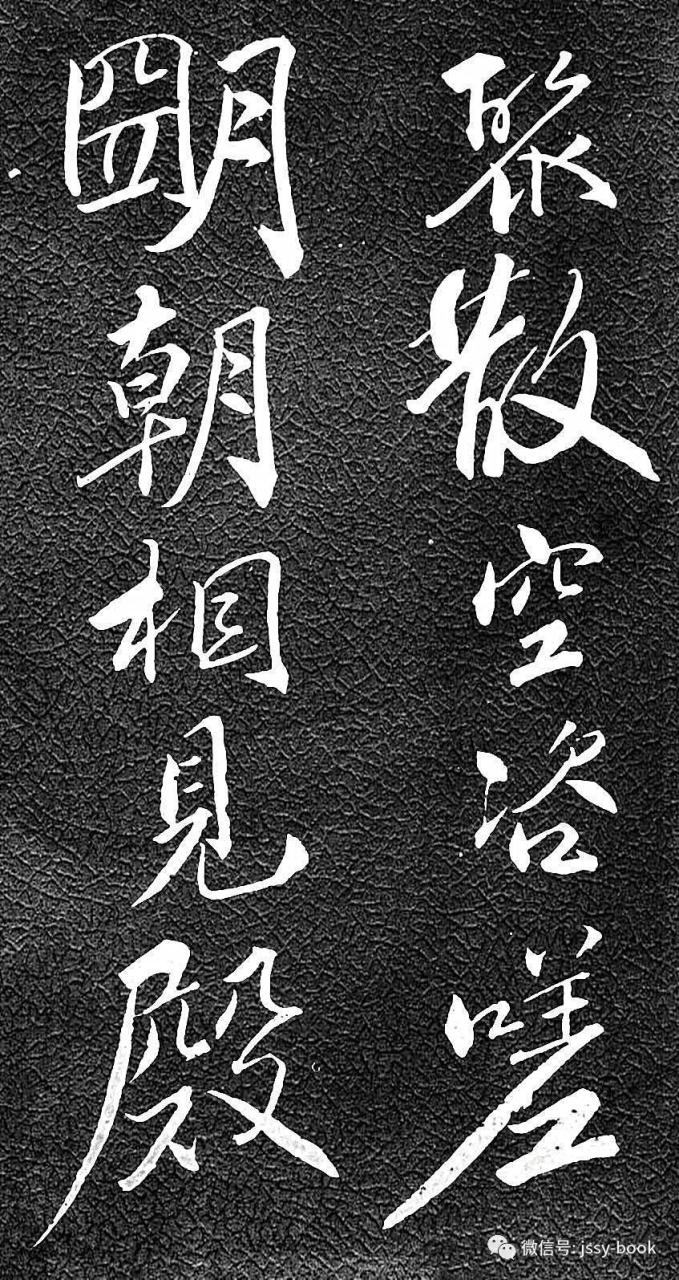 聚散空咨嗟
朙朝相見殿
微信号: jssy-book